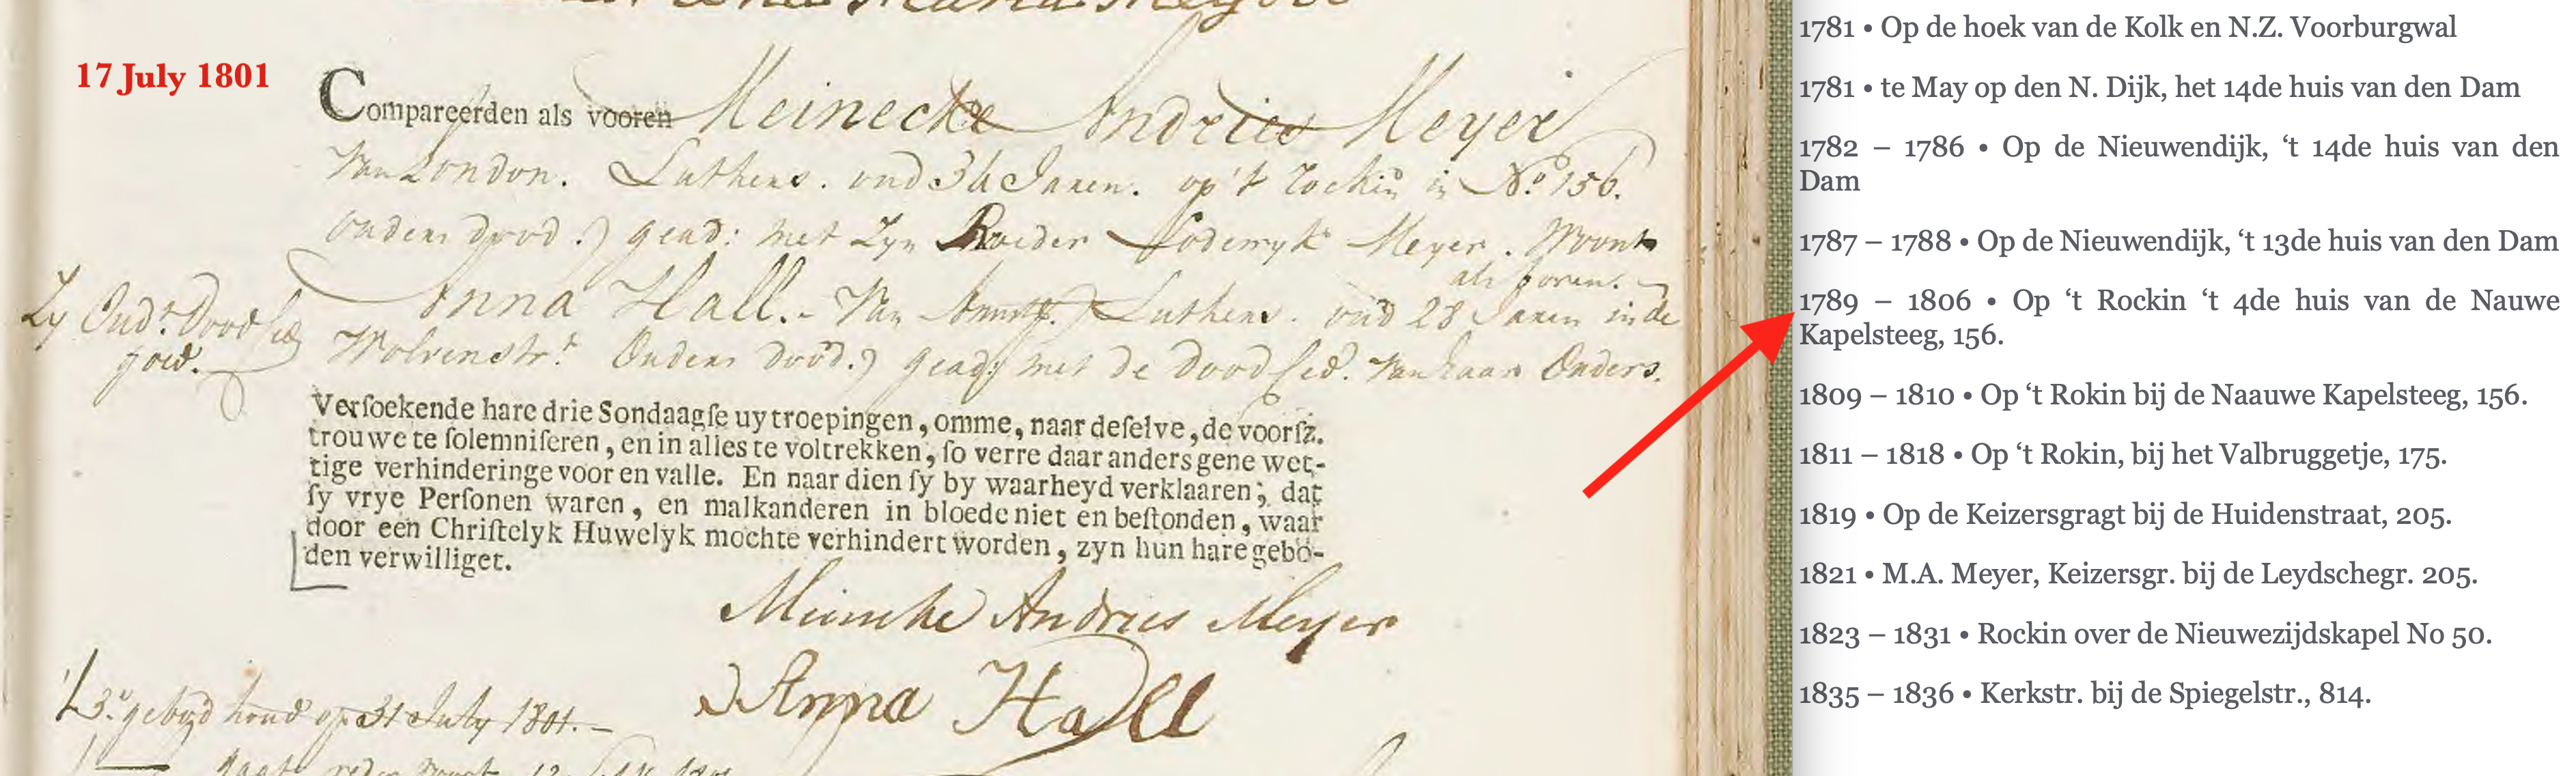 17 July 1801
Compareerden als vooren Meinecke Andries Meyer
Van London. Luthers. oud 34 Jaren. op 't Rockin in No. 156.
ouders dood.) gead: met Zyn Broeder Lodewyk Meyer. Woont
als voren.
Anna Hall. Van Amst. Luthers. oud 28 Jaren in de
Zy Oud.s Dood
goed.
Wolvenstr.t Ouders dood.) gead: met de Dood Ced. van haar Ouders.
Verſoekende hare drie Sondaagſe uytroepingen, omme, naar deſelve, de voorſz.
trouwe te ſolemniſeren, en in alles te voltrekken, ſo verre daar anders gene wet-
tige verhinderinge voor en valle. En naar dien ſy by waarheyd verklaaren; dat
ſy vrye Perſonen waren, en malkanderen in bloede niet en beſtonden, waar
door een Chriſtelyk Huwelyk mochte verhindert worden, zyn hun hare gebo-
den verwilliget.
Meincke Andries Meyer
Anna Hall
't 3.e gebod op 31 July 1801.
1781 • Op de hoek van de Kolk en N.Z. Voorburgwal
1781 • te May op den N. Dijk, het 14de huis van den Dam
1782 – 1786 • Op de Nieuwendijk, ‘t 14de huis van den
Dam
1787 – 1788 • Op de Nieuwendijk, ‘t 13de huis van den Dam
1789 – 1806 • Op ‘t Rockin ‘t 4de huis van de Nauwe
Kapelsteeg, 156.
1809 – 1810 • Op ‘t Rokin bij de Naauwe Kapelsteeg, 156.
1811 – 1818 • Op ‘t Rokin, bij het Valbruggetje, 175.
1819 • Op de Keizersgragt bij de Huidenstraat, 205.
1821 • M.A. Meyer, Keizersgr. bij de Leydschegr. 205.
1823 – 1831 • Rockin over de Nieuwezijdskapel No 50.
1835 – 1836 • Kerkstr. bij de Spiegelstr., 814.